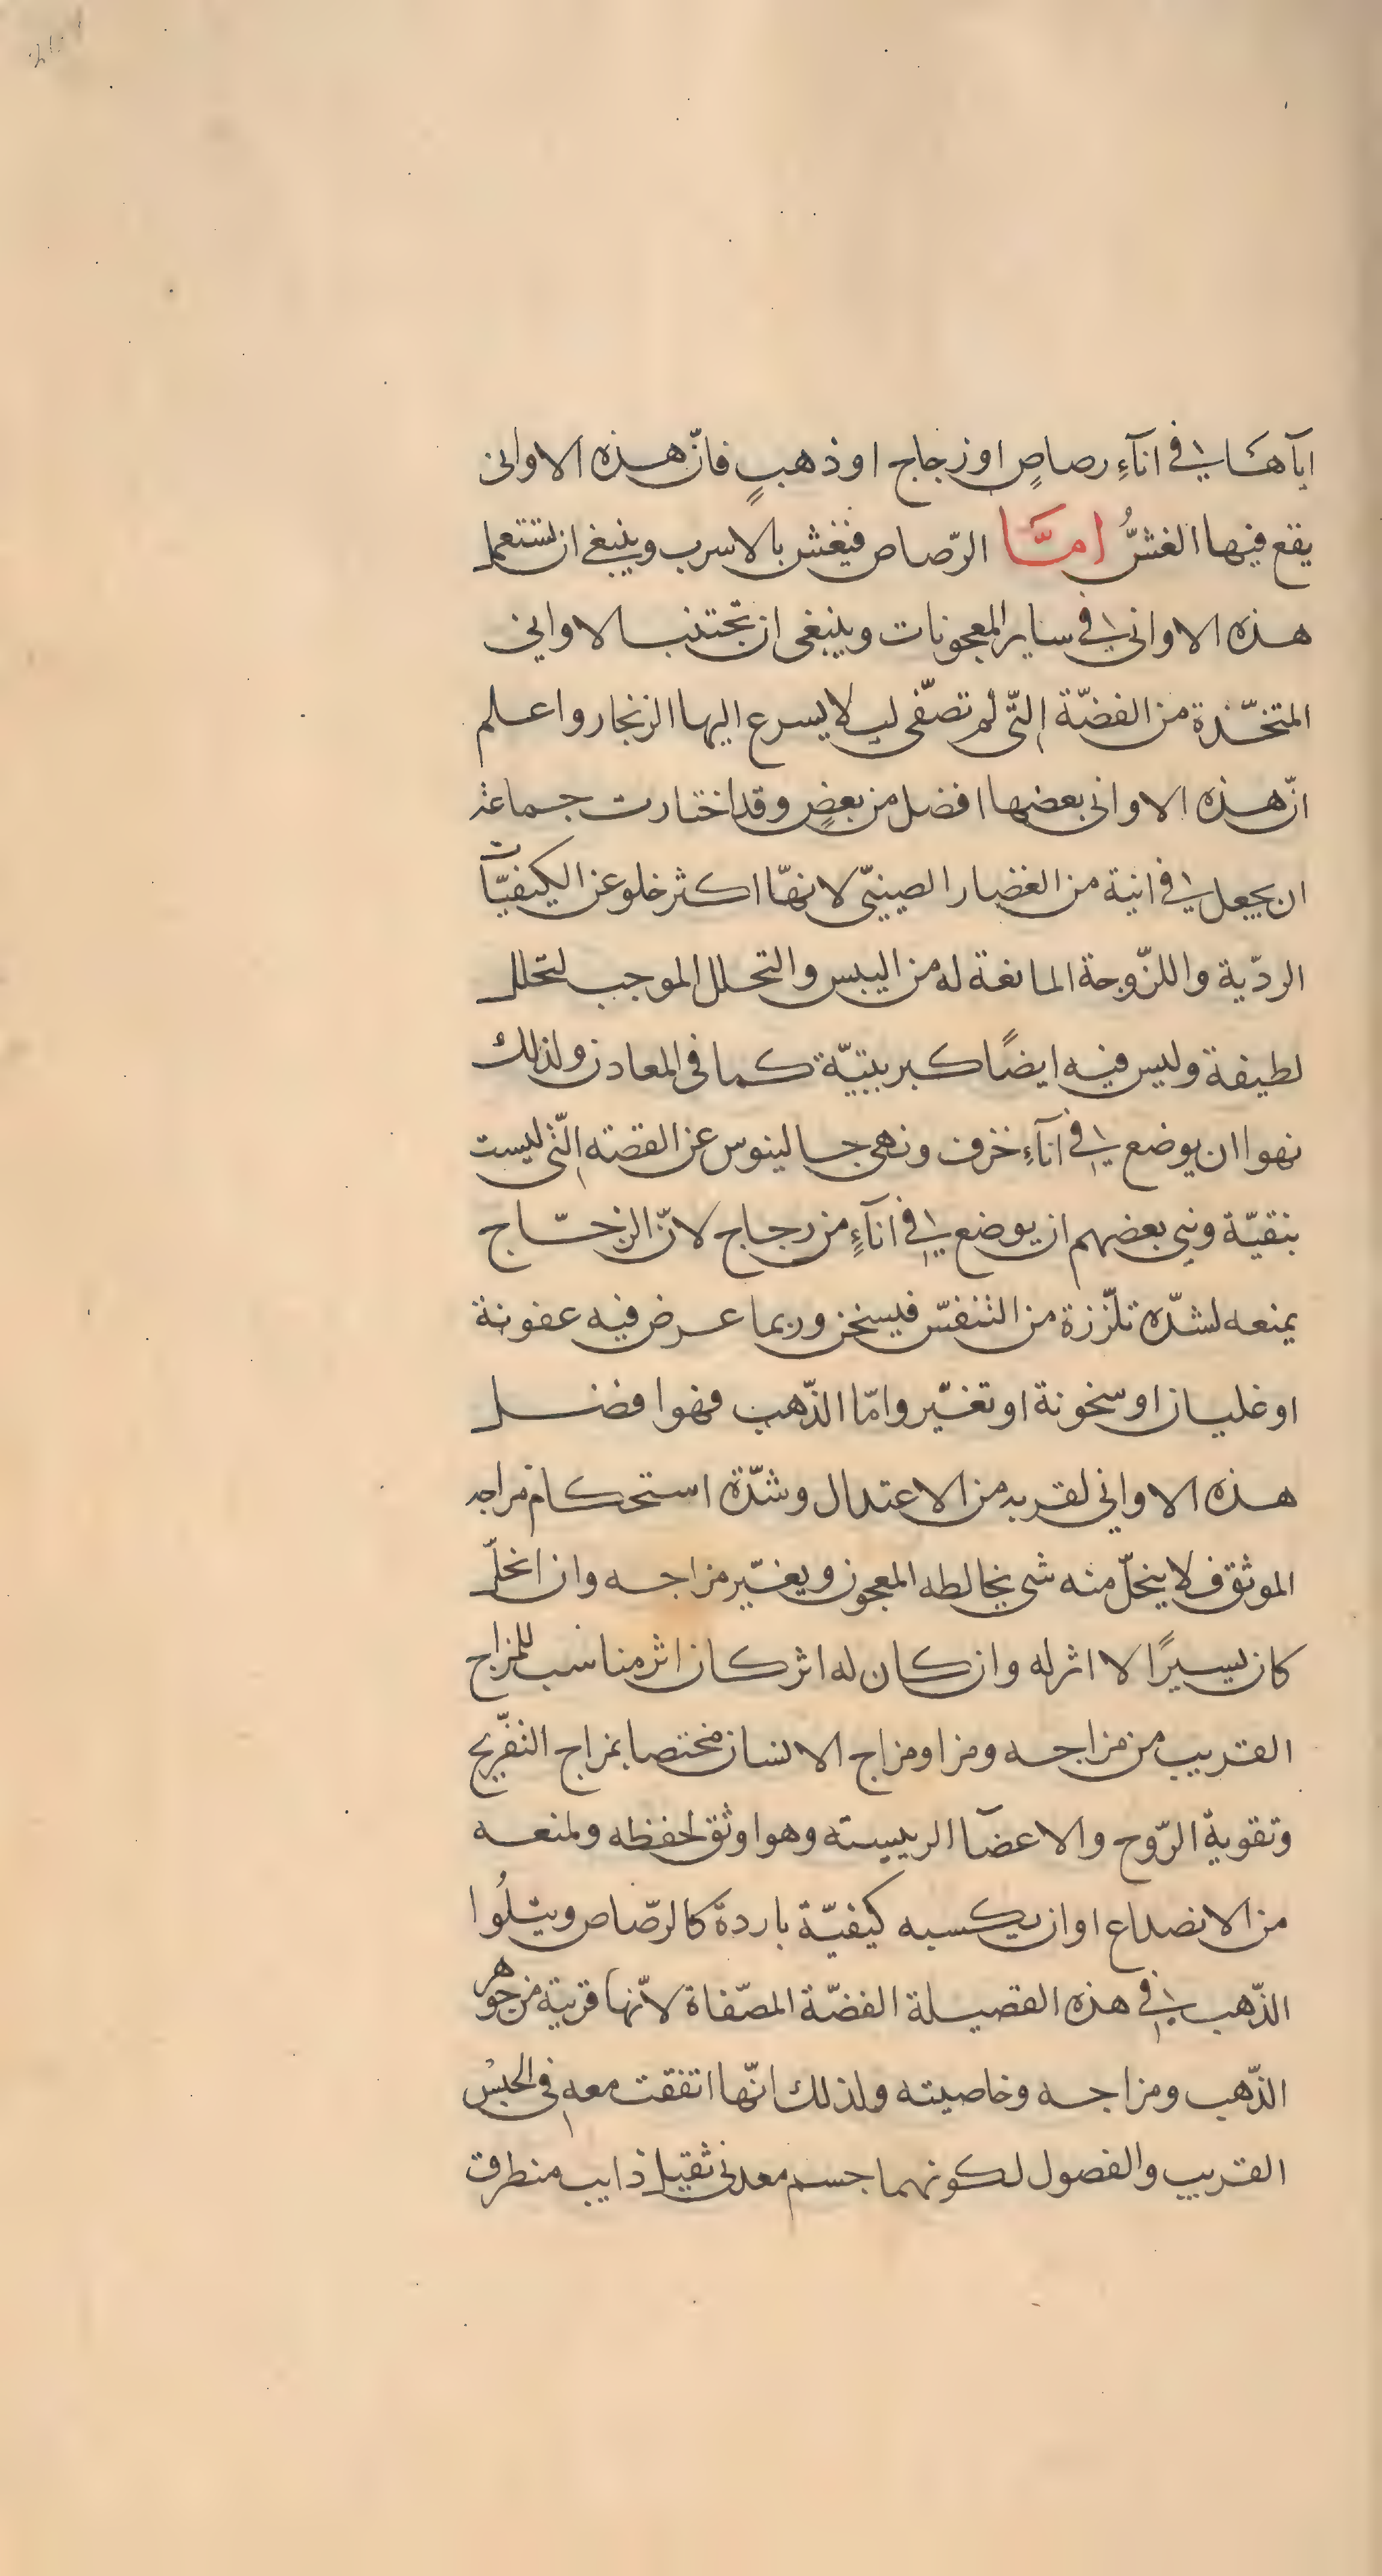 اياها في انآءِ رصاصٍ او زجاج او ذهبٍ فانّ هذه الاوانى
يقع فيها الغشُّ امَّا الرّصاص فيغش بالاسرب وينبغى ان تستعمل
هذه الاوانى في ساير المعجونات وينبغى ان تجتنب الاوانى
المتخّذة من الفضّة التّى لم تصّفى ليلا يسرع اليها الزنجار واعلم
انّ هذه الاوانى بعضها افضل من بعضٍ وقد اختارت جماعة
ان يجعل في انية من الغضار الصينيّ لانهّا اكثر خلو عن الكيفيّات
الردّية واللزّوجة المانعة له من اليبس والتحلل الموجب لتحلل
لطيفة وليس فيه ايضًا كبريتيّة كما فى المعادن ولذلك
نهوا ان يوضع في انآءِ خزف ونهى جالينوس عن الفضته التّى ليست
بنقيّة ونهى بعضهم ان يوضع في انآءٍ من زجاج لانّ الزجّاج
يمنعه لشدّه تلزّزة من التنفسّ فيسخن وربما عرض فيه عفونة
او غليان او سخونة او تغيّر وامّا الذّهب فهو افضل
هذه الاوانى لقربه من الاعتدال وشدّة استحكام مزاجه
الموثق فلا ينحلّ منه شى يخالطه المعجون ويغيّر مزاجه وان انحلّ
كان يسيرًا لا اثر له وان كان له اثر كان اثر مناسب للمزاج
القريب من مزاجه ومزا ومزاج الانسان مختصا بمزاج التفّريح
وتقوية الرّوح والاعضآ الرييسته وهو اوثق لحفظه ولمنعه
من الانصداع او ان يكسبه كيفيّة باردة كالرصّاص ويتلُوا
الذّهب في هذه الفضيلة الفضّة المصّفاة لانّها قريبة من جوهر
الذّهب ومزاجه وخاصيته ولذلك انّها اتفقت معه فى الجنس
القريب والفصول لكونهما جسم معدنى ثقيل ذايب منطرق